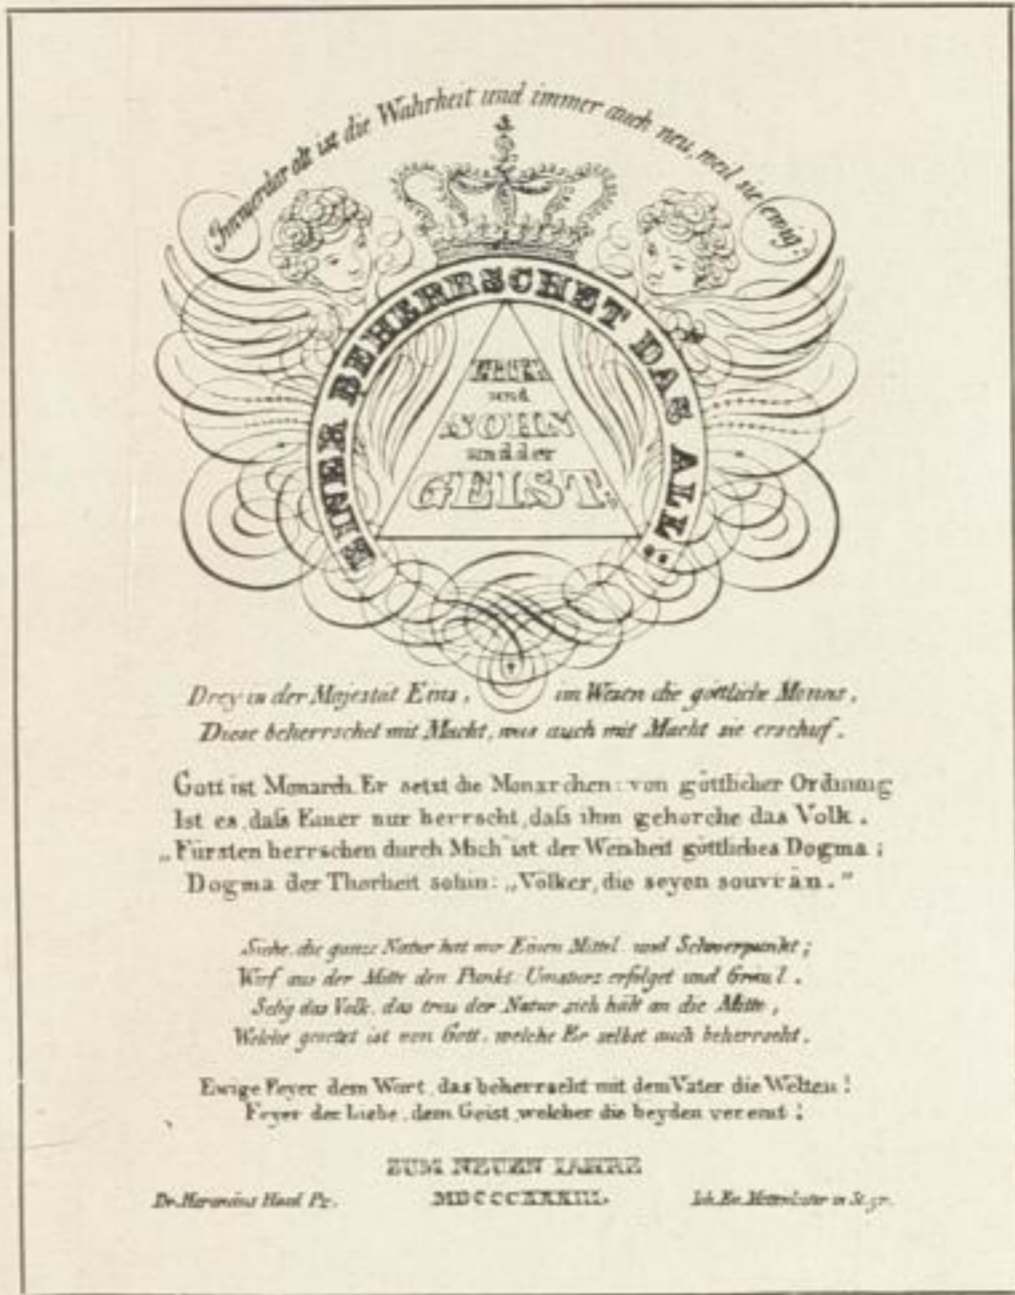 Immerdar alt ist die Wahrheit und immer auch neu, weil sie ewig:
EINER BEHERRSCHET DAS ALL:
und
SOHN
und der
GEIST.
Drey in der Majestät Eins, im Wesen die göttliche Monas,
Diese beherrschet mit Macht, was auch mit Macht sie erschuf.
Gott ist Monarch. Er setzt die Monarchen: von göttlicher Ordnung
Ist es, daſs Einer nur herrscht, daſs ihm gehorche das Volk.
„Fürsten herrschen durch Mich" ist der Weisheit göttliches Dogma;
Dogma der Thorheit sohin: „Völker, die seyen souverän."
Siehe, die ganze Natur hat nur Einen Mittel und Schwerpunkt;
Wirf aus der Mitte den Punkt: Umsturz erfolget und Gräul.
Selig das Volk, das treu der Natur sich hält an die Mitte,
Welche gesetzt ist von Gott, welche Er selbst auch beherrscht.
Ewige Feyer dem Wort, das beherrscht mit dem Vater die Welten!
Feyer der Liebe, dem Geist, welcher die beyden vereint!
ZUM NEUEN IAHRE
MDCCCXXXIII.
Dr. Haid Pz.
Joh. Ev. in St. gr.